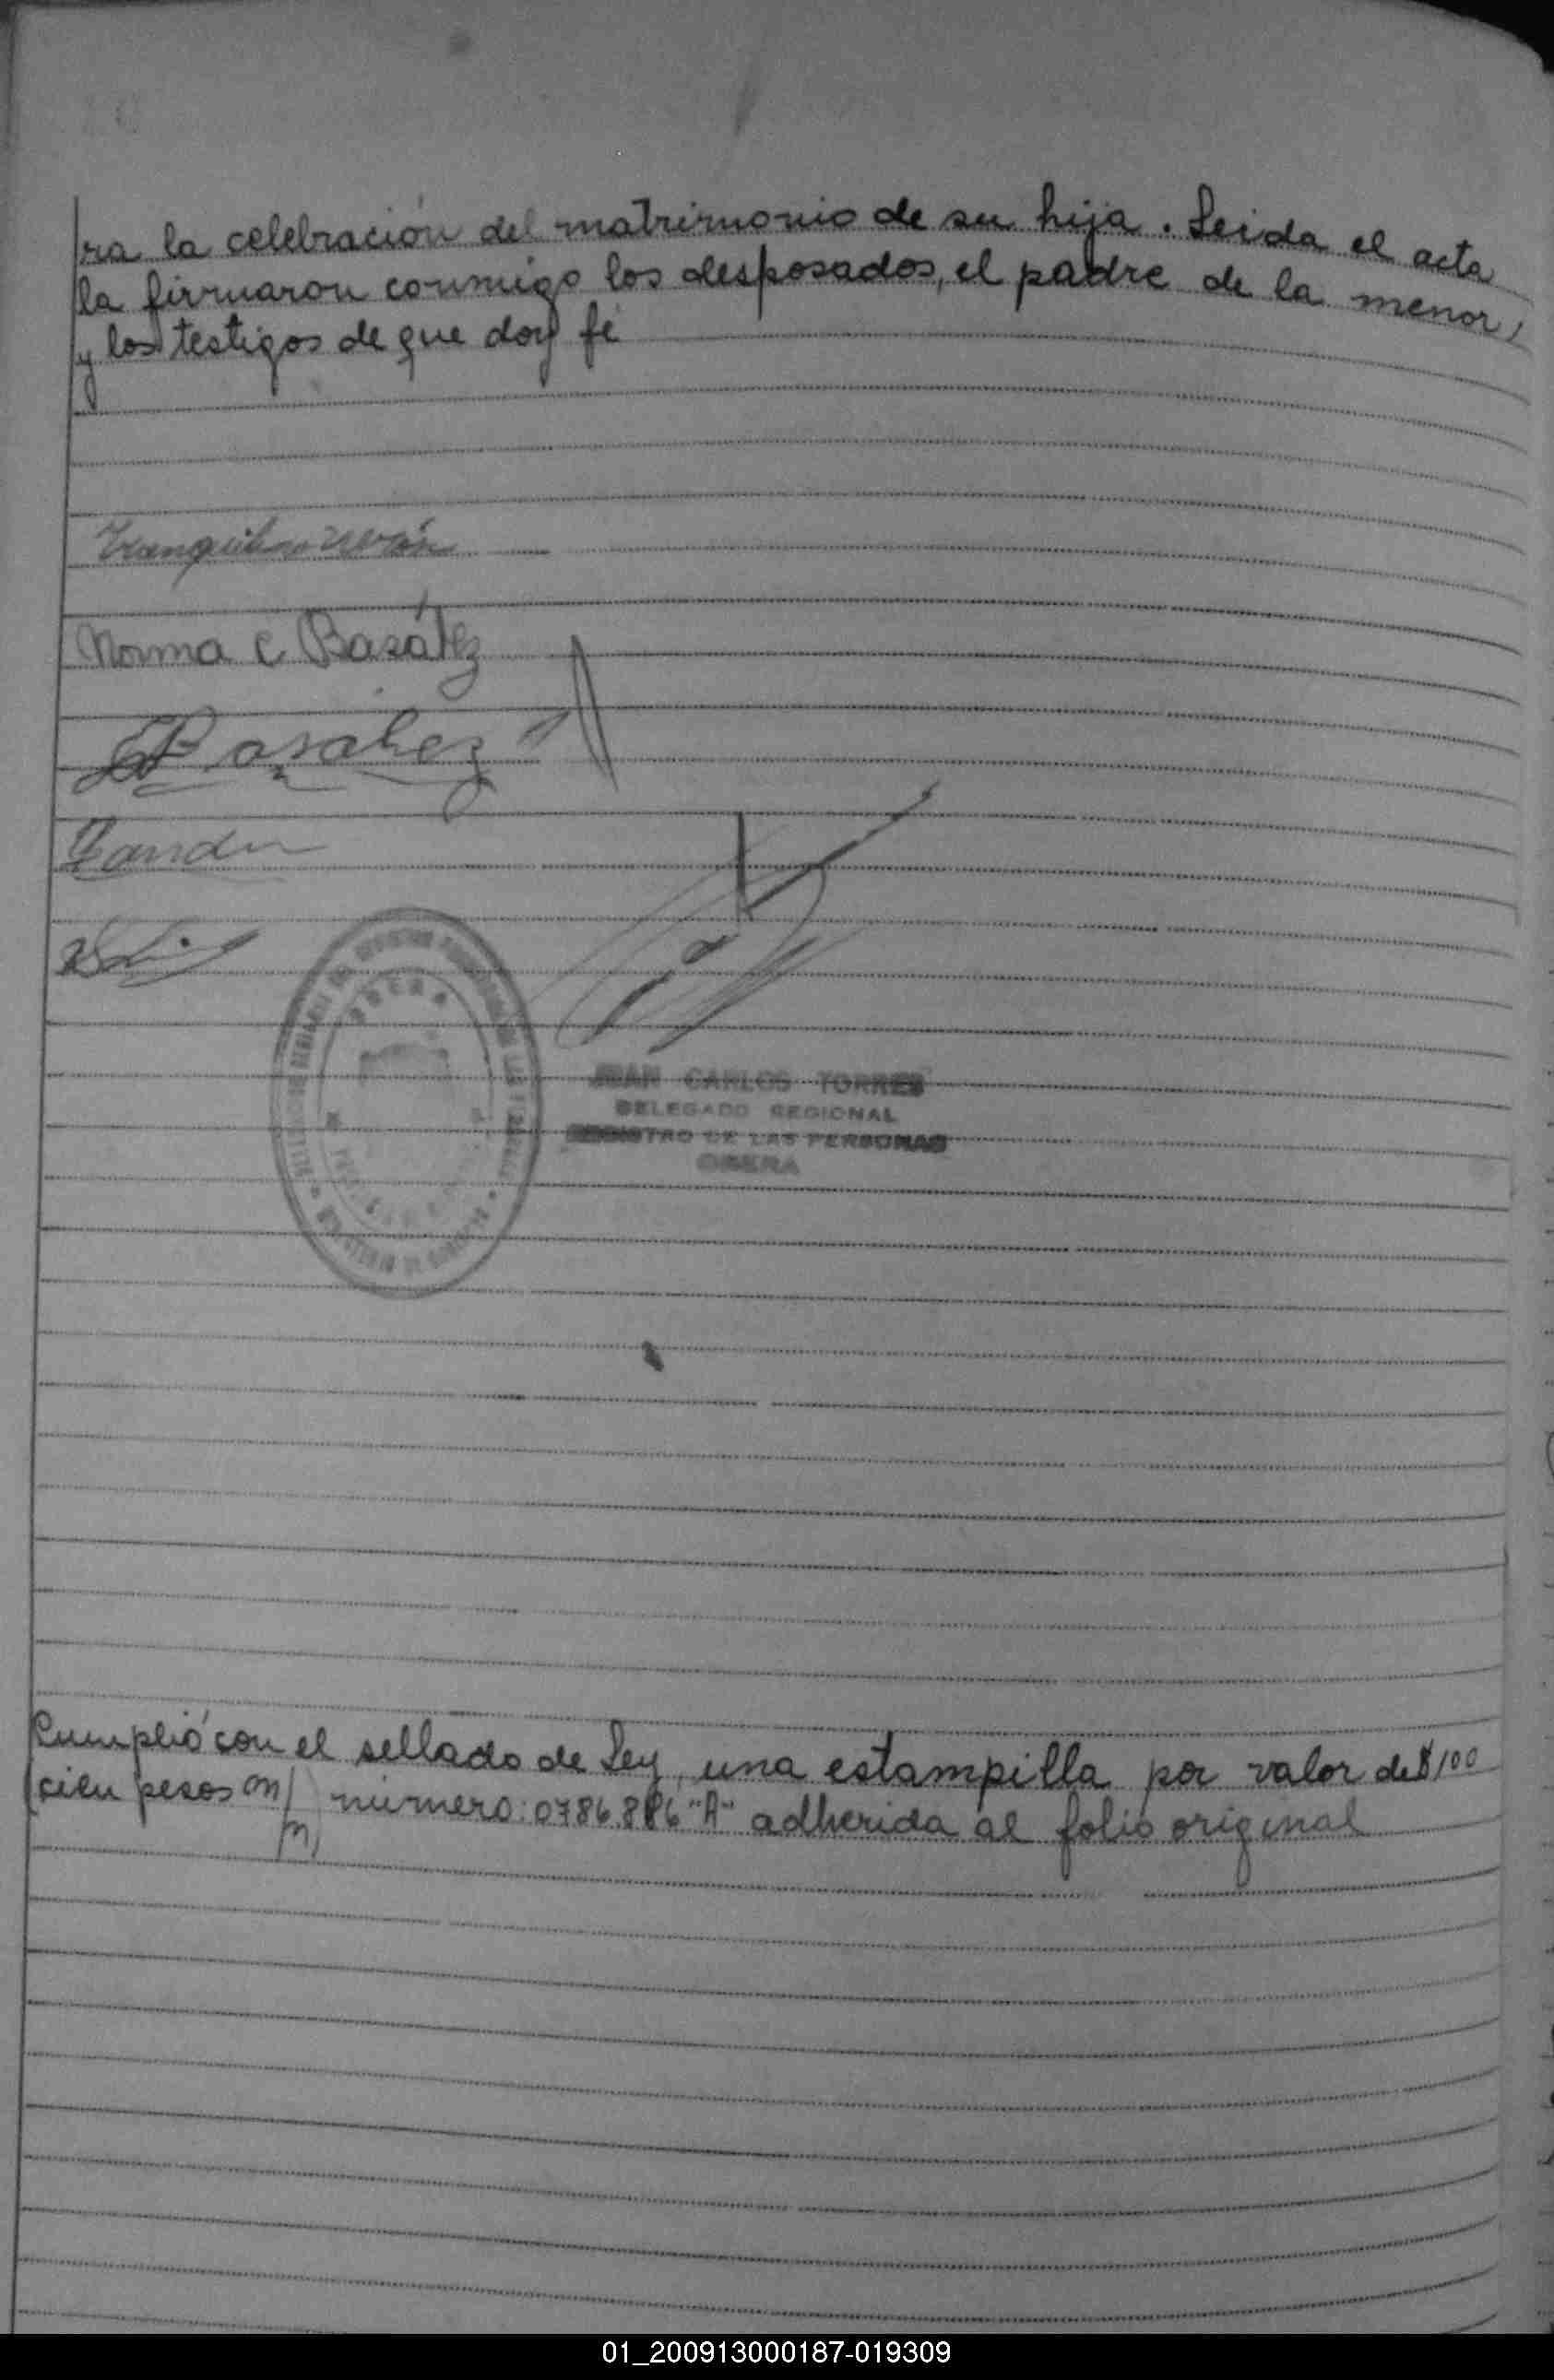 ra la celebración del matrimonio de su hija. Leida el acta
la firmaron conmigo los desposados, el padre de la menor,
y los testigos de que doy fé
Tranquilino
Norma C Basá
JUAN CARLOS TORRES
DELEGADO REGIONAL
REGISTRO DE LAS PERSONAS
OBERA
Cumplió con el sellado de Ley, una estampilla por valor de $100
cien pesos m/
n) número: 0786.886 "A" adherida al folio original
01_200913000187-019309